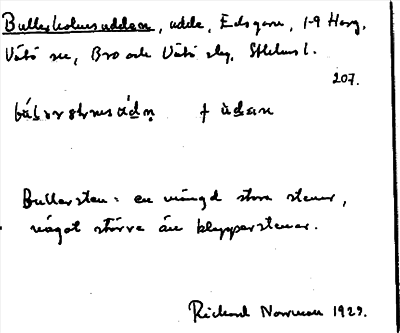 Bullerholmsudden, udde, Edsgarn, 1-9 Harg,
Vätö sn, Bro och Vätö skg, Sthlms l.
207.
+ ùdan
Bullersten: en mängd stora stenar,
något större än klapperstenar.
Richard Norrman 1929.